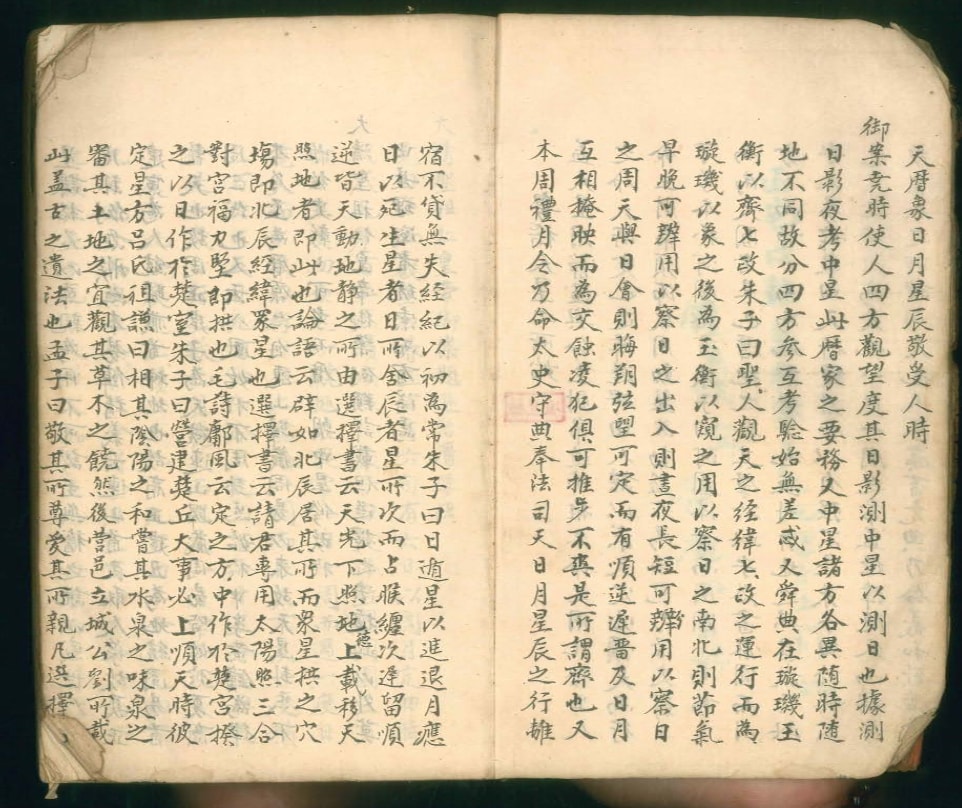 天曆象日月星辰敬受人時
御案堯時使人四方觀望度其日影測中星以測日也據測
日影夜考中星此曆家之要務又中星諸方各異随時随
地不同故分四方参互考驗始無差忒又舜典在璇璣玉
衡以齊七政朱子曰聖人觀天之經緯七政之運行而為
璇璣以象之後為玉衡以窺之用以察日之南北則節氣
早晚可辨用以察日之出入則晝夜長短可辨用以察日
之周天與日會則晦朔弦望可定而有順逆遲晋及日月
互相掩映而為交蝕凌犯俱可推步不爽是所謂齊也又
本周禮月令乃命太史守典奉法司天日月星辰之行離
宿不貸無失經紀以初為常朱子曰日遁星以進退月應
日以死生星者日所舍辰者星所次而占候纏次逆留順
逆皆天動地静之所由選擇書云天光下照地上載移天
照地者即此也論語云辟如北辰居其所而衆星拱之穴
塲即北辰經緯衆星也選擇書云請君專用太陽照三合
對宮福力堅即拱也毛詩鄘風云定之方中作於楚宮揆
之以日作於楚室朱子曰營建楚丘大事必上順天時彼
定星方呂氏祖謙曰相其陰陽之和嘗其水泉之味泉之
審其土地之宜觀其草木之饒然後营邑立城公劉所載
此盖古之遺法也孟子曰敬其所尊愛其所親凡選擇